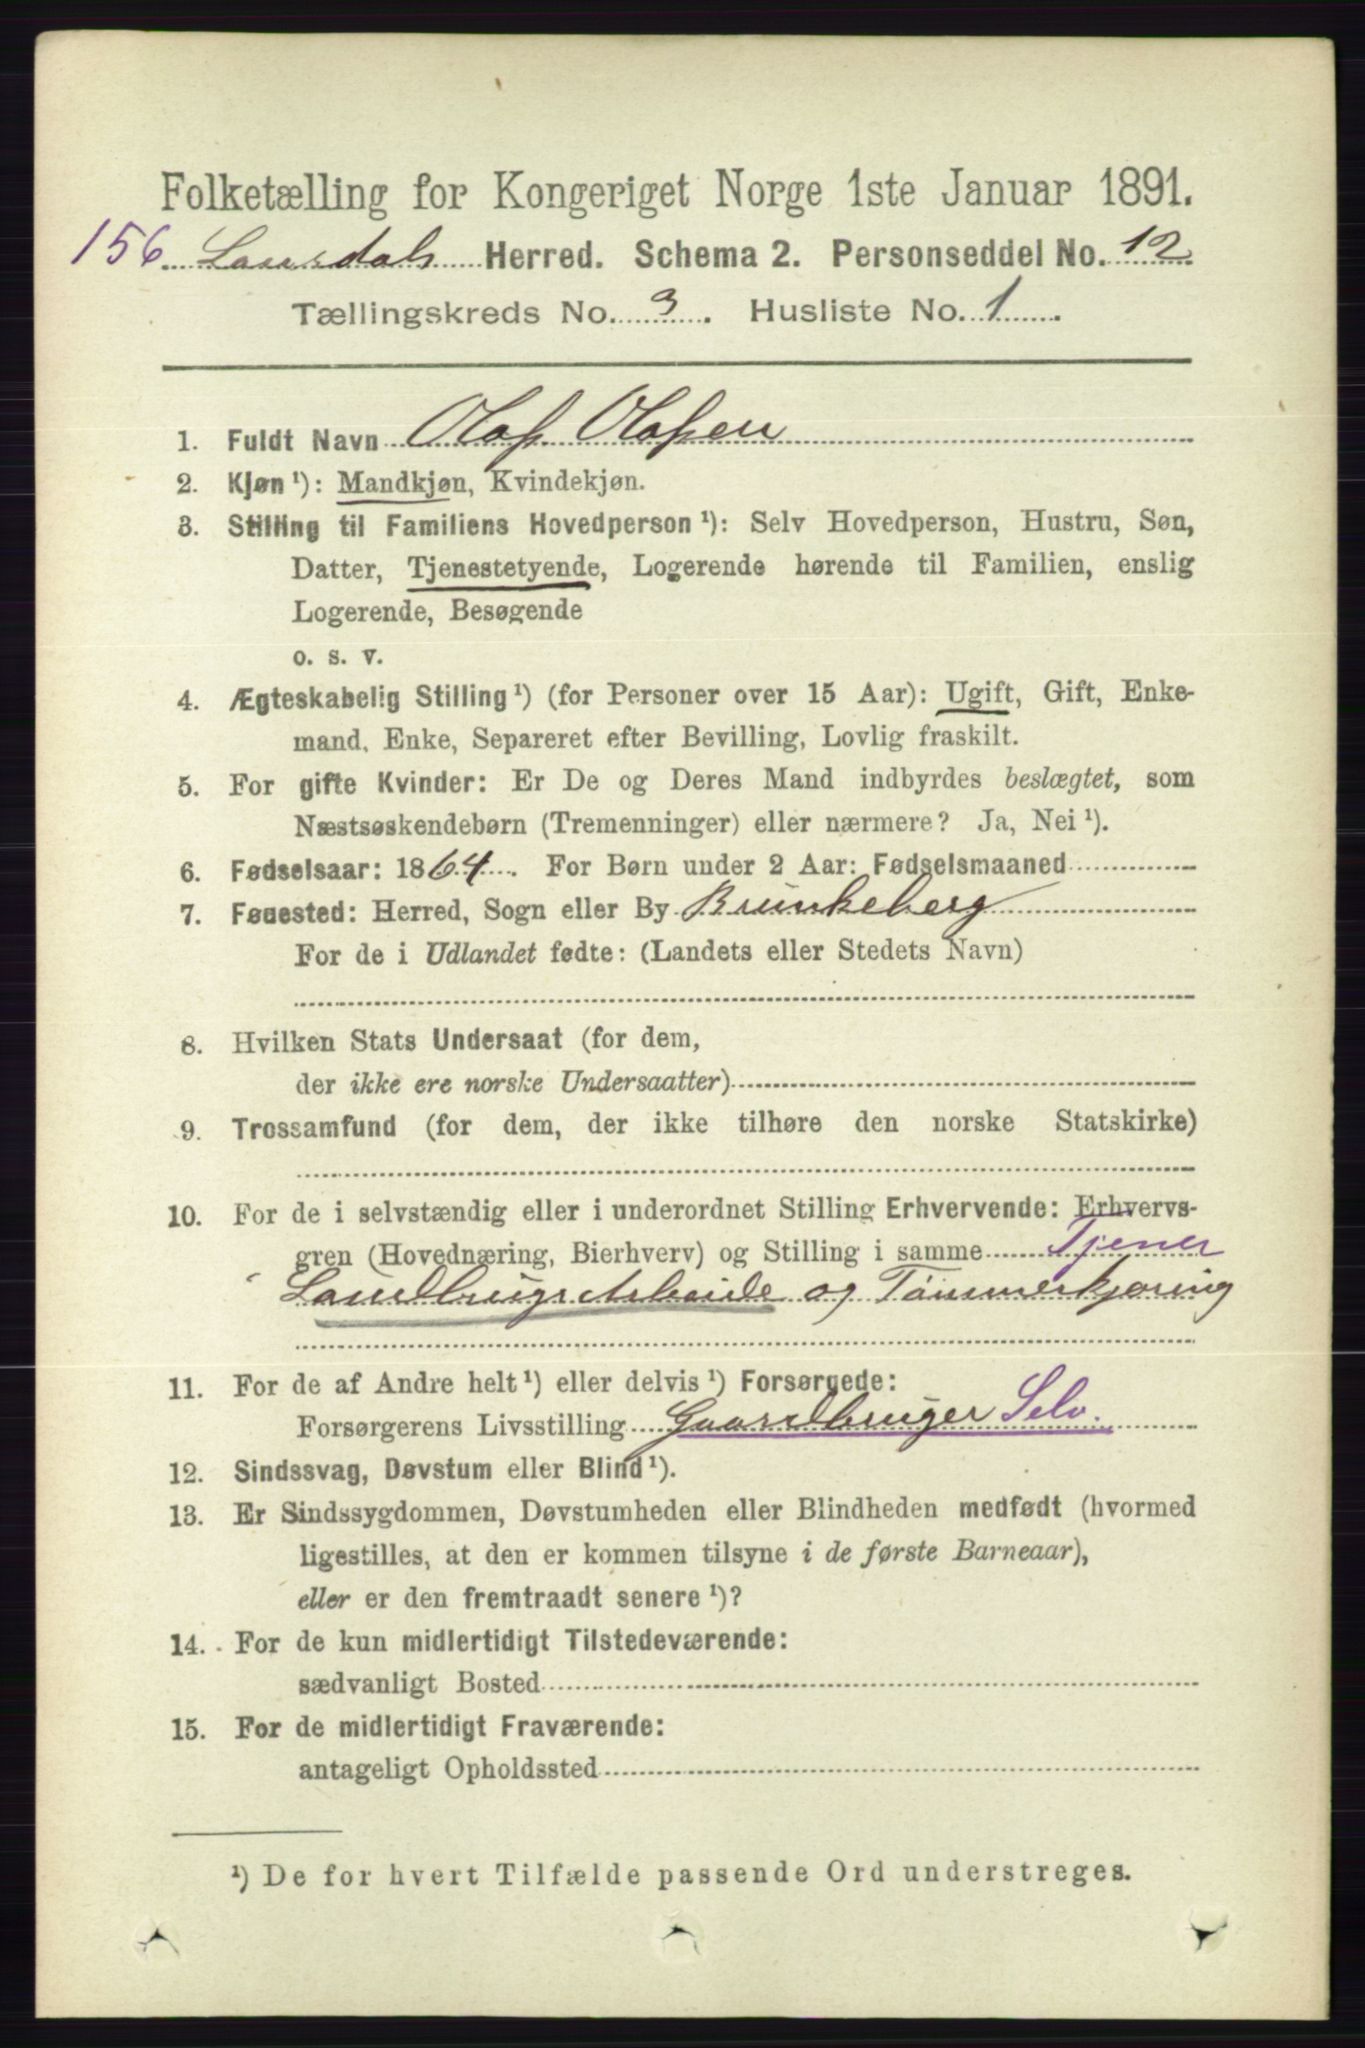 Folketælling for Kongeriget Norge 1ste Januar 1891.
156 Laurdals Herred. Schema 2. Personseddel No. 12
Tællingskreds No. 3. Husliste No. 1.
1. Fuldt Navn Olaf Olafsen
2. Kjøn ¹): Mandkjøn, Kvindekjøn.
3. Stilling til Familiens Hovedperson ¹): Selv Hovedperson, Hustru, Søn,
Datter, Tjenestetyende, Logerende hørende til Familien, enslig
Logerende, Besøgende
o. s. v.
4. Ægteskabelig Stilling ¹) (for Personer over 15 Aar): Ugift, Gift, Enke-
mand, Enke, Separeret efter Bevilling, Lovlig fraskilt.
5. For gifte Kvinder: Er De og Deres Mand indbyrdes beslægtet, som
Næstsøskendebørn (Tremenninger) eller nærmere? Ja, Nei ¹).
6. Fødselsaar: 1864. For Børn under 2 Aar: Fødselsmaaned
7. Føuested: Herred, Sogn eller By Brunkeberg
For de i Udlandet fødte: (Landets eller Stedets Navn)
8. Hvilken Stats Undersaat (for dem,
der ikke ere norske Undersaatter)
9. Trossamfund (for dem, der ikke tilhøre den norske Statskirke)
10. For de i selvstændig eller i underordnet Stilling Erhvervende: Erhvervs-
gren (Hovednæring, Bierhverv) og Stilling i samme Tjener
Landbrugsarbeide og Tømmerkjøring
11. For de af Andre helt ¹) eller delvis ¹) Forsørgede:
Forsørgerens Livsstilling Gaardbruger Selv.
12. Sindssvag, Døvstum eller Blind ¹).
13. Er Sindssygdommen, Døvstumheden eller Blindheden medfødt (hvormed
ligestilles, at den er kommen tilsyne i de første Barneaar),
eller er den fremtraadt senere ¹)?
14. For de kun midlertidigt Tilstedeværende:
sædvanligt Bosted
15. For de midlertidigt Fraværende:
antageligt Opholdssted
¹) De for hvert Tilfælde passende Ord understreges.